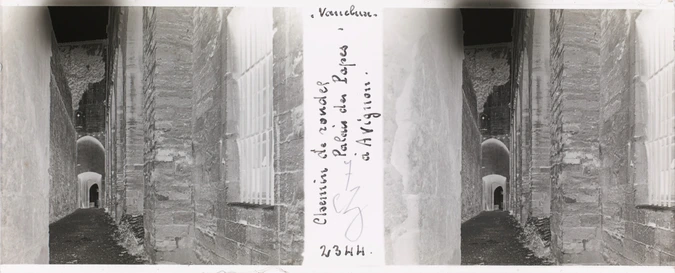 Vaucluse.
Chemin de rondes
Palais des Papes.
à Avignon.
2344.